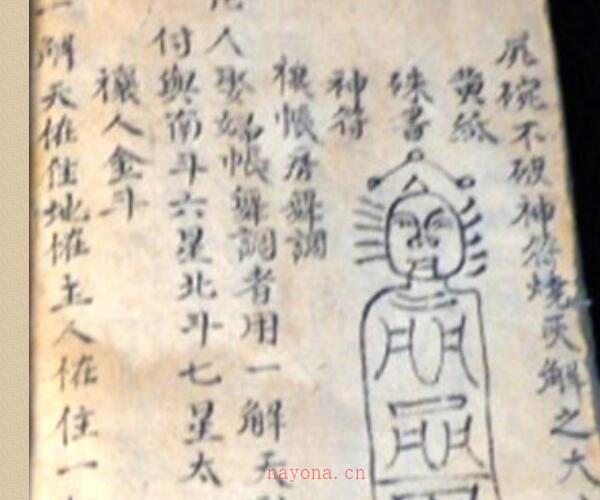 碗不破神符燒灰解之大
黄紙
硃書
神符
禳帳房舞調
人娶婦帳舞調者用一解天
付與南斗六星北斗七星太
禳人金斗
一解天恠住地恠主人恠住一
nayona.cn